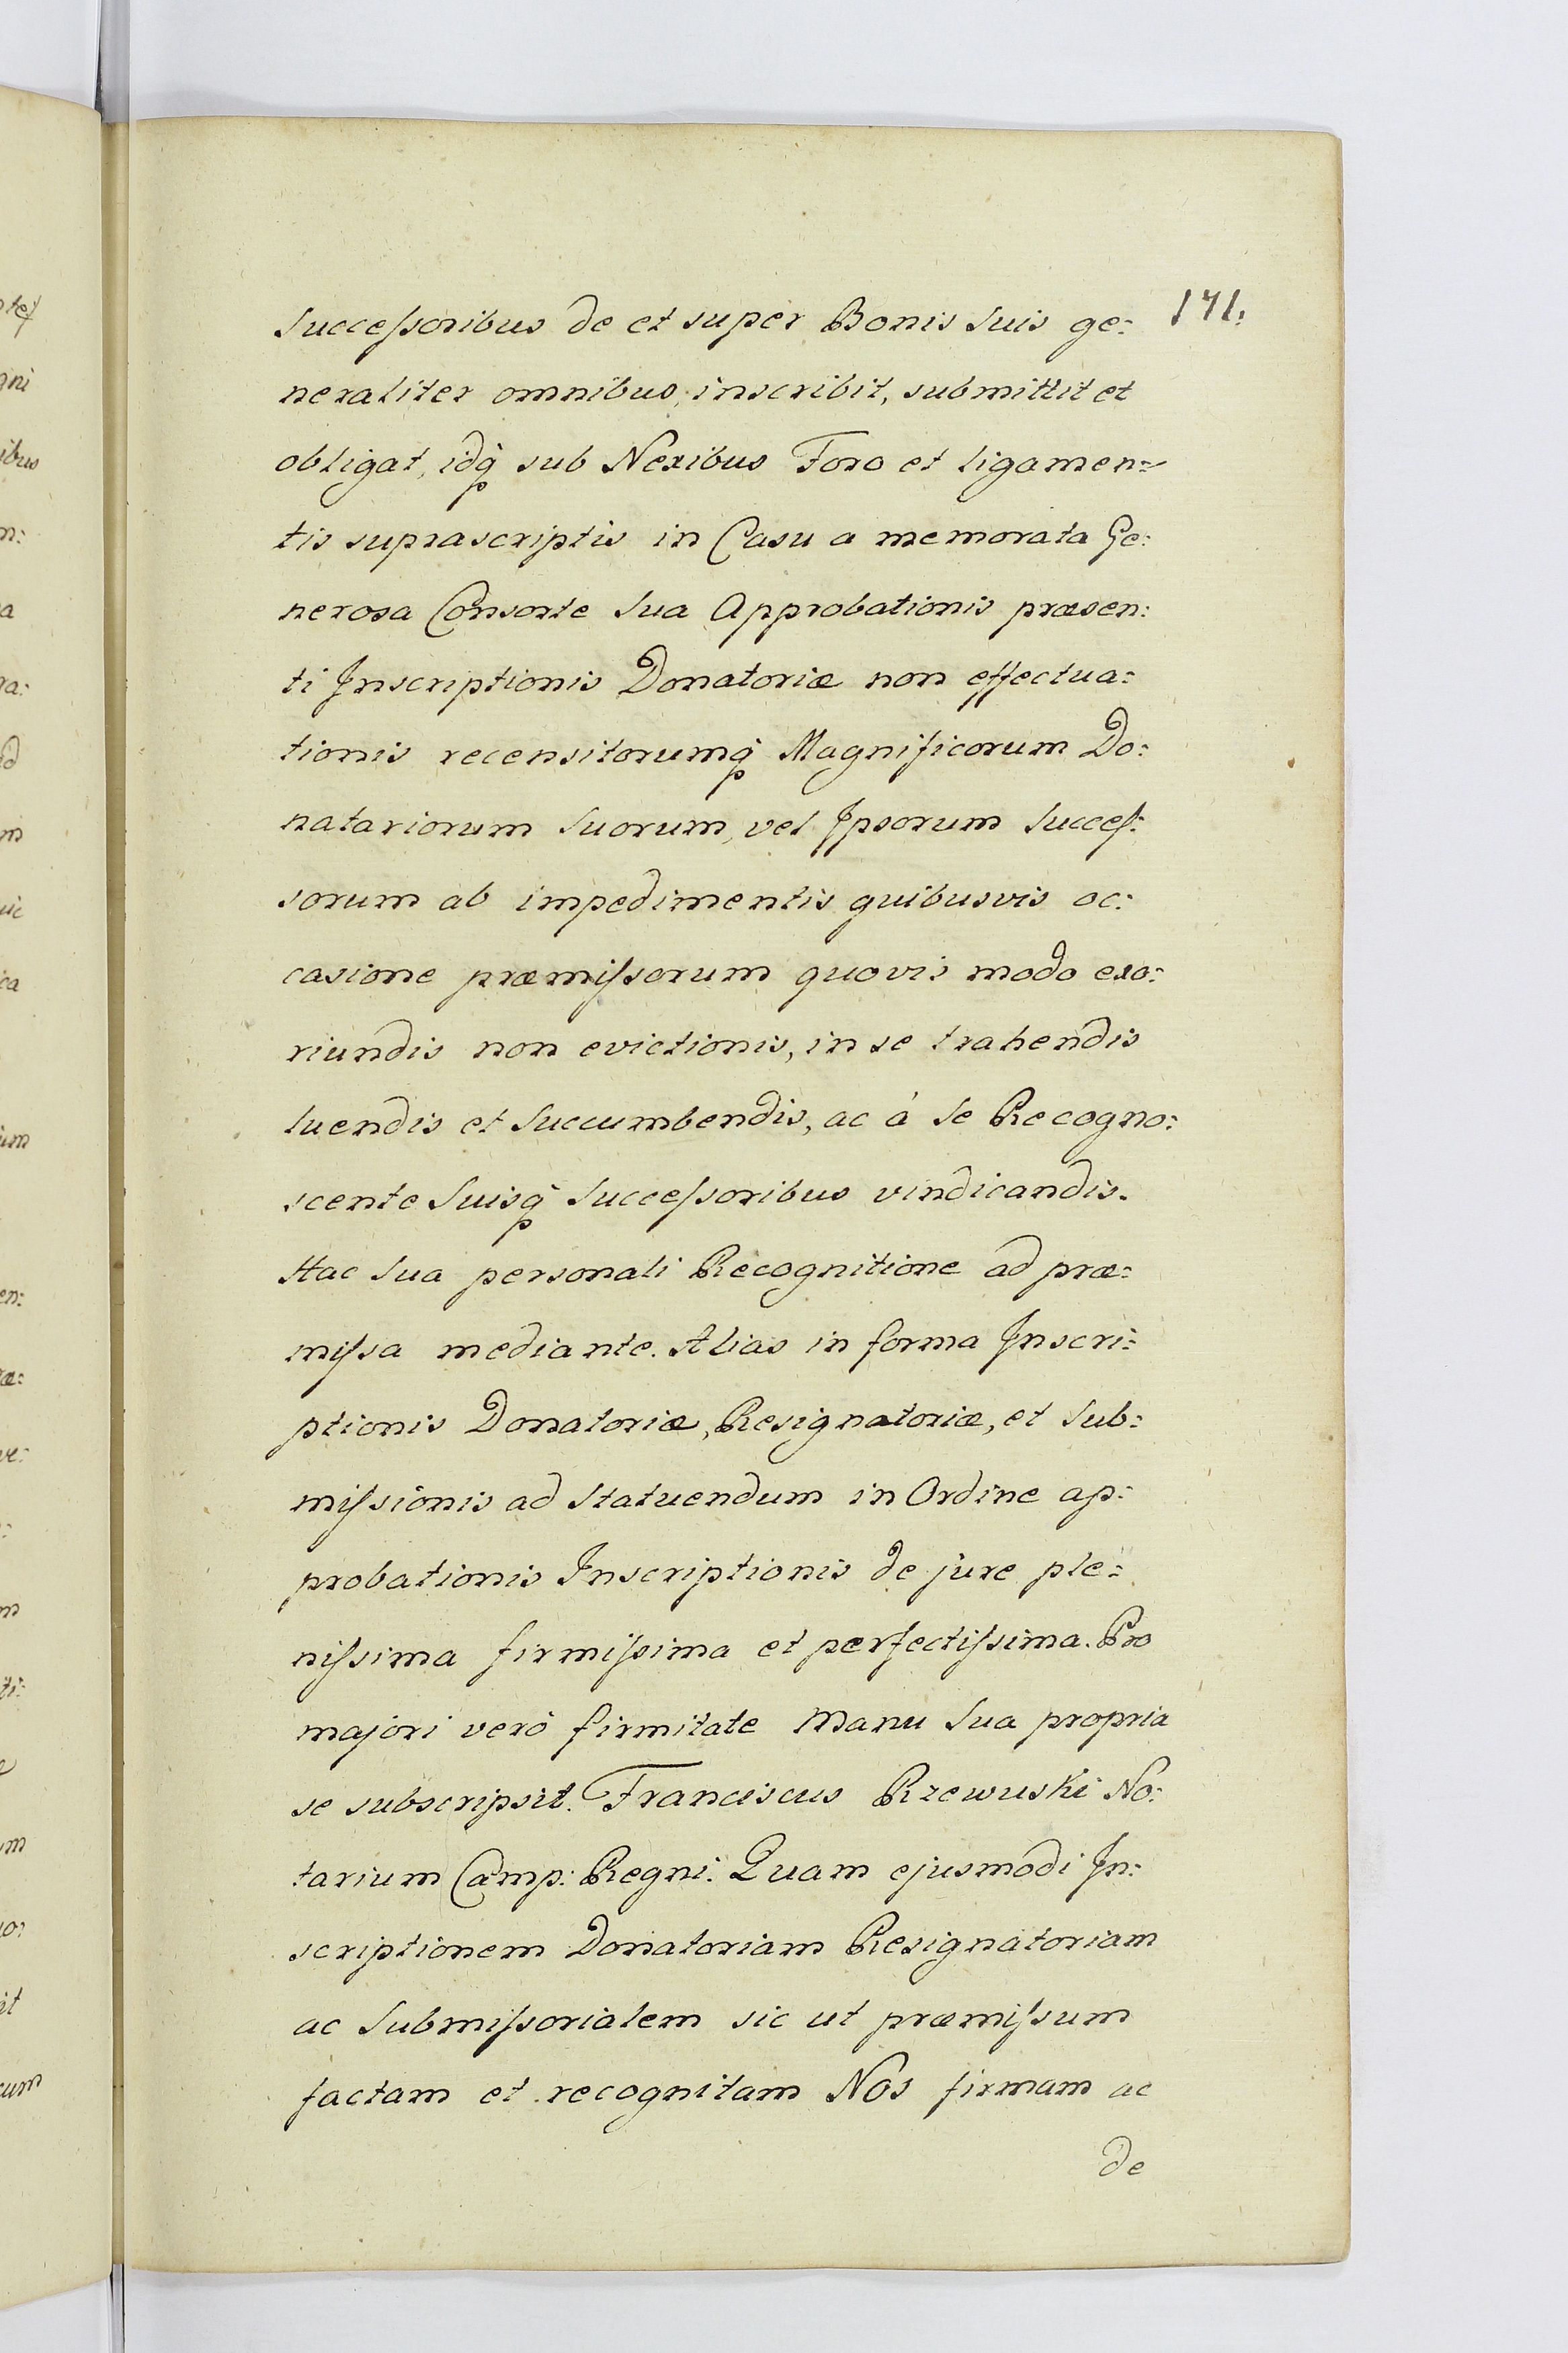 171.
Successoribus de et super Bonis Suis ge:
neraliter omnibus, inscribit, submittit et
obligat, idq sub Nexibus Foro et ligamen=
tis suprascriptis in Casu a memorata Ge:
nerosa Consorte Sua Approbationis præsen:
ti Inscriptionis Donatoriæ non effectua:
tionis recensitorumq Magnificorum Do:
natariorum Suorum, vel Ipsorum Succes:
sorum ab impedimentis quibusvis oc:
casione præmissorum quovis modo exo:
riundis non evictionis, in se trahendis
luendis et Succumbendis, ac à Se Recogno:
scente Suisq Successoribus vindicandis.
Hac Sua personali Recognitione ad præ:
missa mediante. Alias in forma Inscri:
ptionis Donatoriæ, Resignatoriæ, et Sub:
missionis ad Statuendum in Ordine ap:
probationis Inscriptionis de jure ple:
nissima firmissima et perfectissima. Pro
majori verò firmitate Manu Sua propria
se subscripsit. Franciscus Rzewuski No:
tarium Camp: Regni. Quam ejusmodi In:
scriptionem Donatoriam Resignatoriam
ac Submissorialem sic ut præmissum
factam et recognitam Nos firmam ac
de